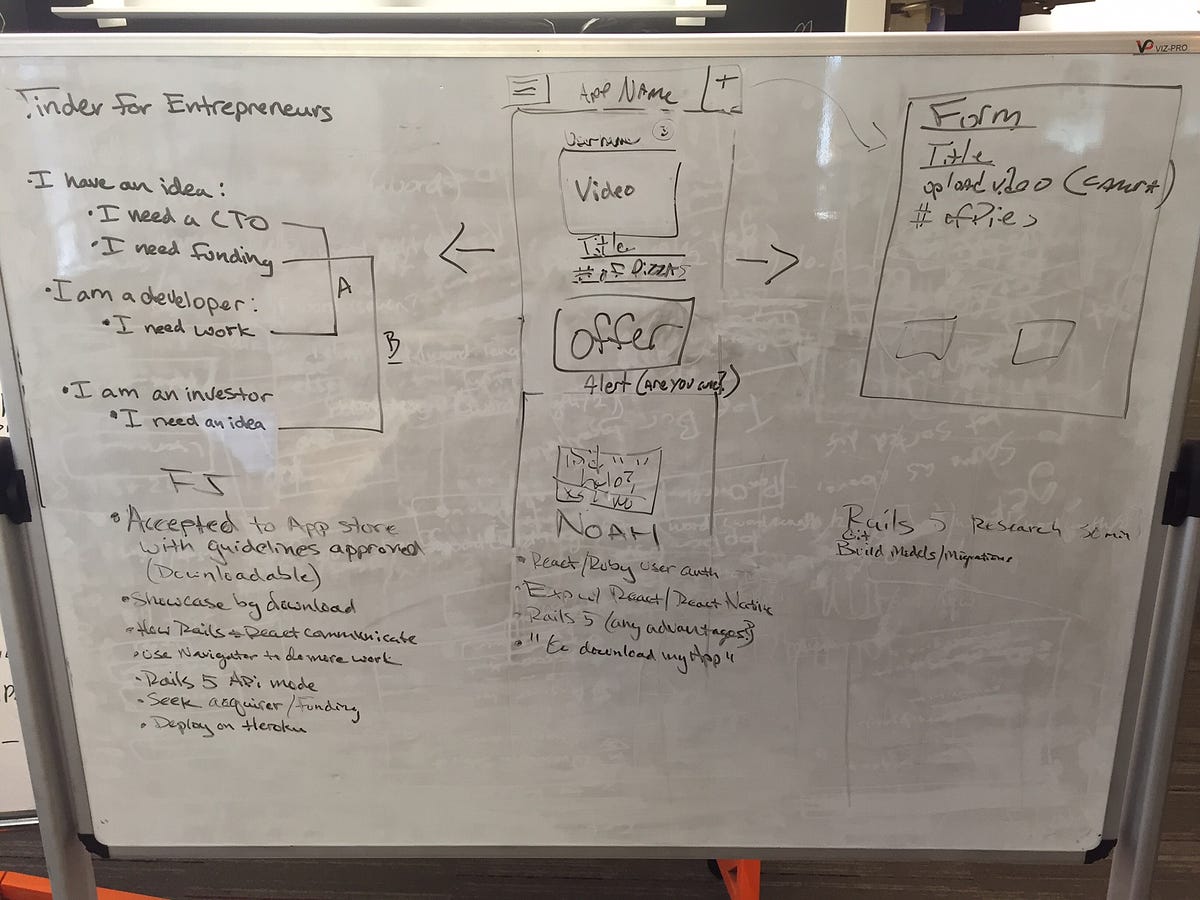 VIZ-PRO
Tinder for Entrepreneurs
• I have an idea:
• I need a CTO
• I need funding
• I am a developer:
• I need work
• I am an investor
• I need an idea
A
B
FJ
• Accepted to App store
with guidelines approved
(Downloadable)
• Showcase by download
• How Rails & React communicate
• Use Navigator to do more work
• Rails 5 APi mode
• Seek acquirer/Funding
• Deploy on Heroku
App NAME
+
Username
Video
Title
# of Pizzas
offer
Alert (Are you sure?)
No
NOAH
• React/Ruby User auth
• Expo w/ React/React Native
• Rails 5 (any advantages?)
• " to download my App "
Form
Title
upload video (camera)
# of Pies
Rails 5 Research 30 min
Git
Build Models/Migrations